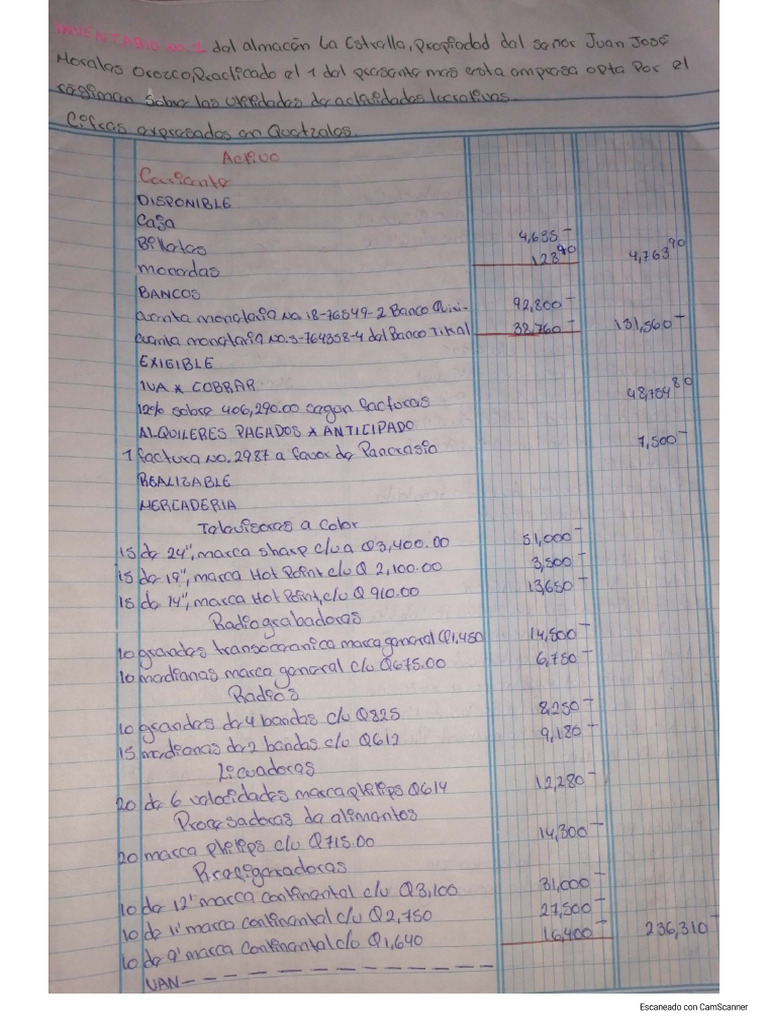 INVENTARIO No. 1 del almacén La Estrella, Propiedad del senor Juan José
Morales Orozco, Practicado el 1 del presente mes esta empresa opta Por el
régimen Sobre las utilidades de actividades lucrativas.
Cifras expresadas en Quetzales.
Activo
Corriente
DISPONIBLE
Casa
Billetes 4,635-
monedas 128 90 4,763 90
BANCOS
cuenta monetaria No. 18-76549-2 Banco Quixi- 92,800-
cuenta monetaria No. 3-764358-4 del Banco Tikal 32,760- 131,560-
EXIGIBLE
IVA X COBRAR 48,754 80
12% sobre 406,290.00 segun facturas
ALQUILERES PAGADOS X ANTICIPADO 7,500-
1 factura No. 2987 a favor de Pancrasio
REALIZABLE
MERCADERIA
Televisores a Color
15 de 24", marca sharp c/u a Q3,400.00 51,000-
15 de 19", marca Hot Point c/u Q 2,100.00 3,500-
15 de 14", marca Hot Point, c/u Q 910.00 13,650-
Radiograbadoras
10 grandes transoceanica marca general Q1,450 14,500-
10 medianas marca general c/u Q675.00 6,750-
Radios
10 grandes de 4 bandas c/u Q825 8,250-
15 medianas de 2 bandas c/u Q612 9,180-
Licuadoras
20 de 6 velocidades marca philips Q614 12,280-
Procesadoras de alimentos
20 marca philips c/u Q715.00 14,300-
Refrigeradoras
10 de 12' marca continental c/u Q3,100 31,000-
10 de 11' marca continental c/u Q2,750 27,500-
10 de 9' marca continental c/u Q1,640 16,400- 236,310-
VAN- - - - - - - - - - - - - - - -
Escaneado con CamScanner